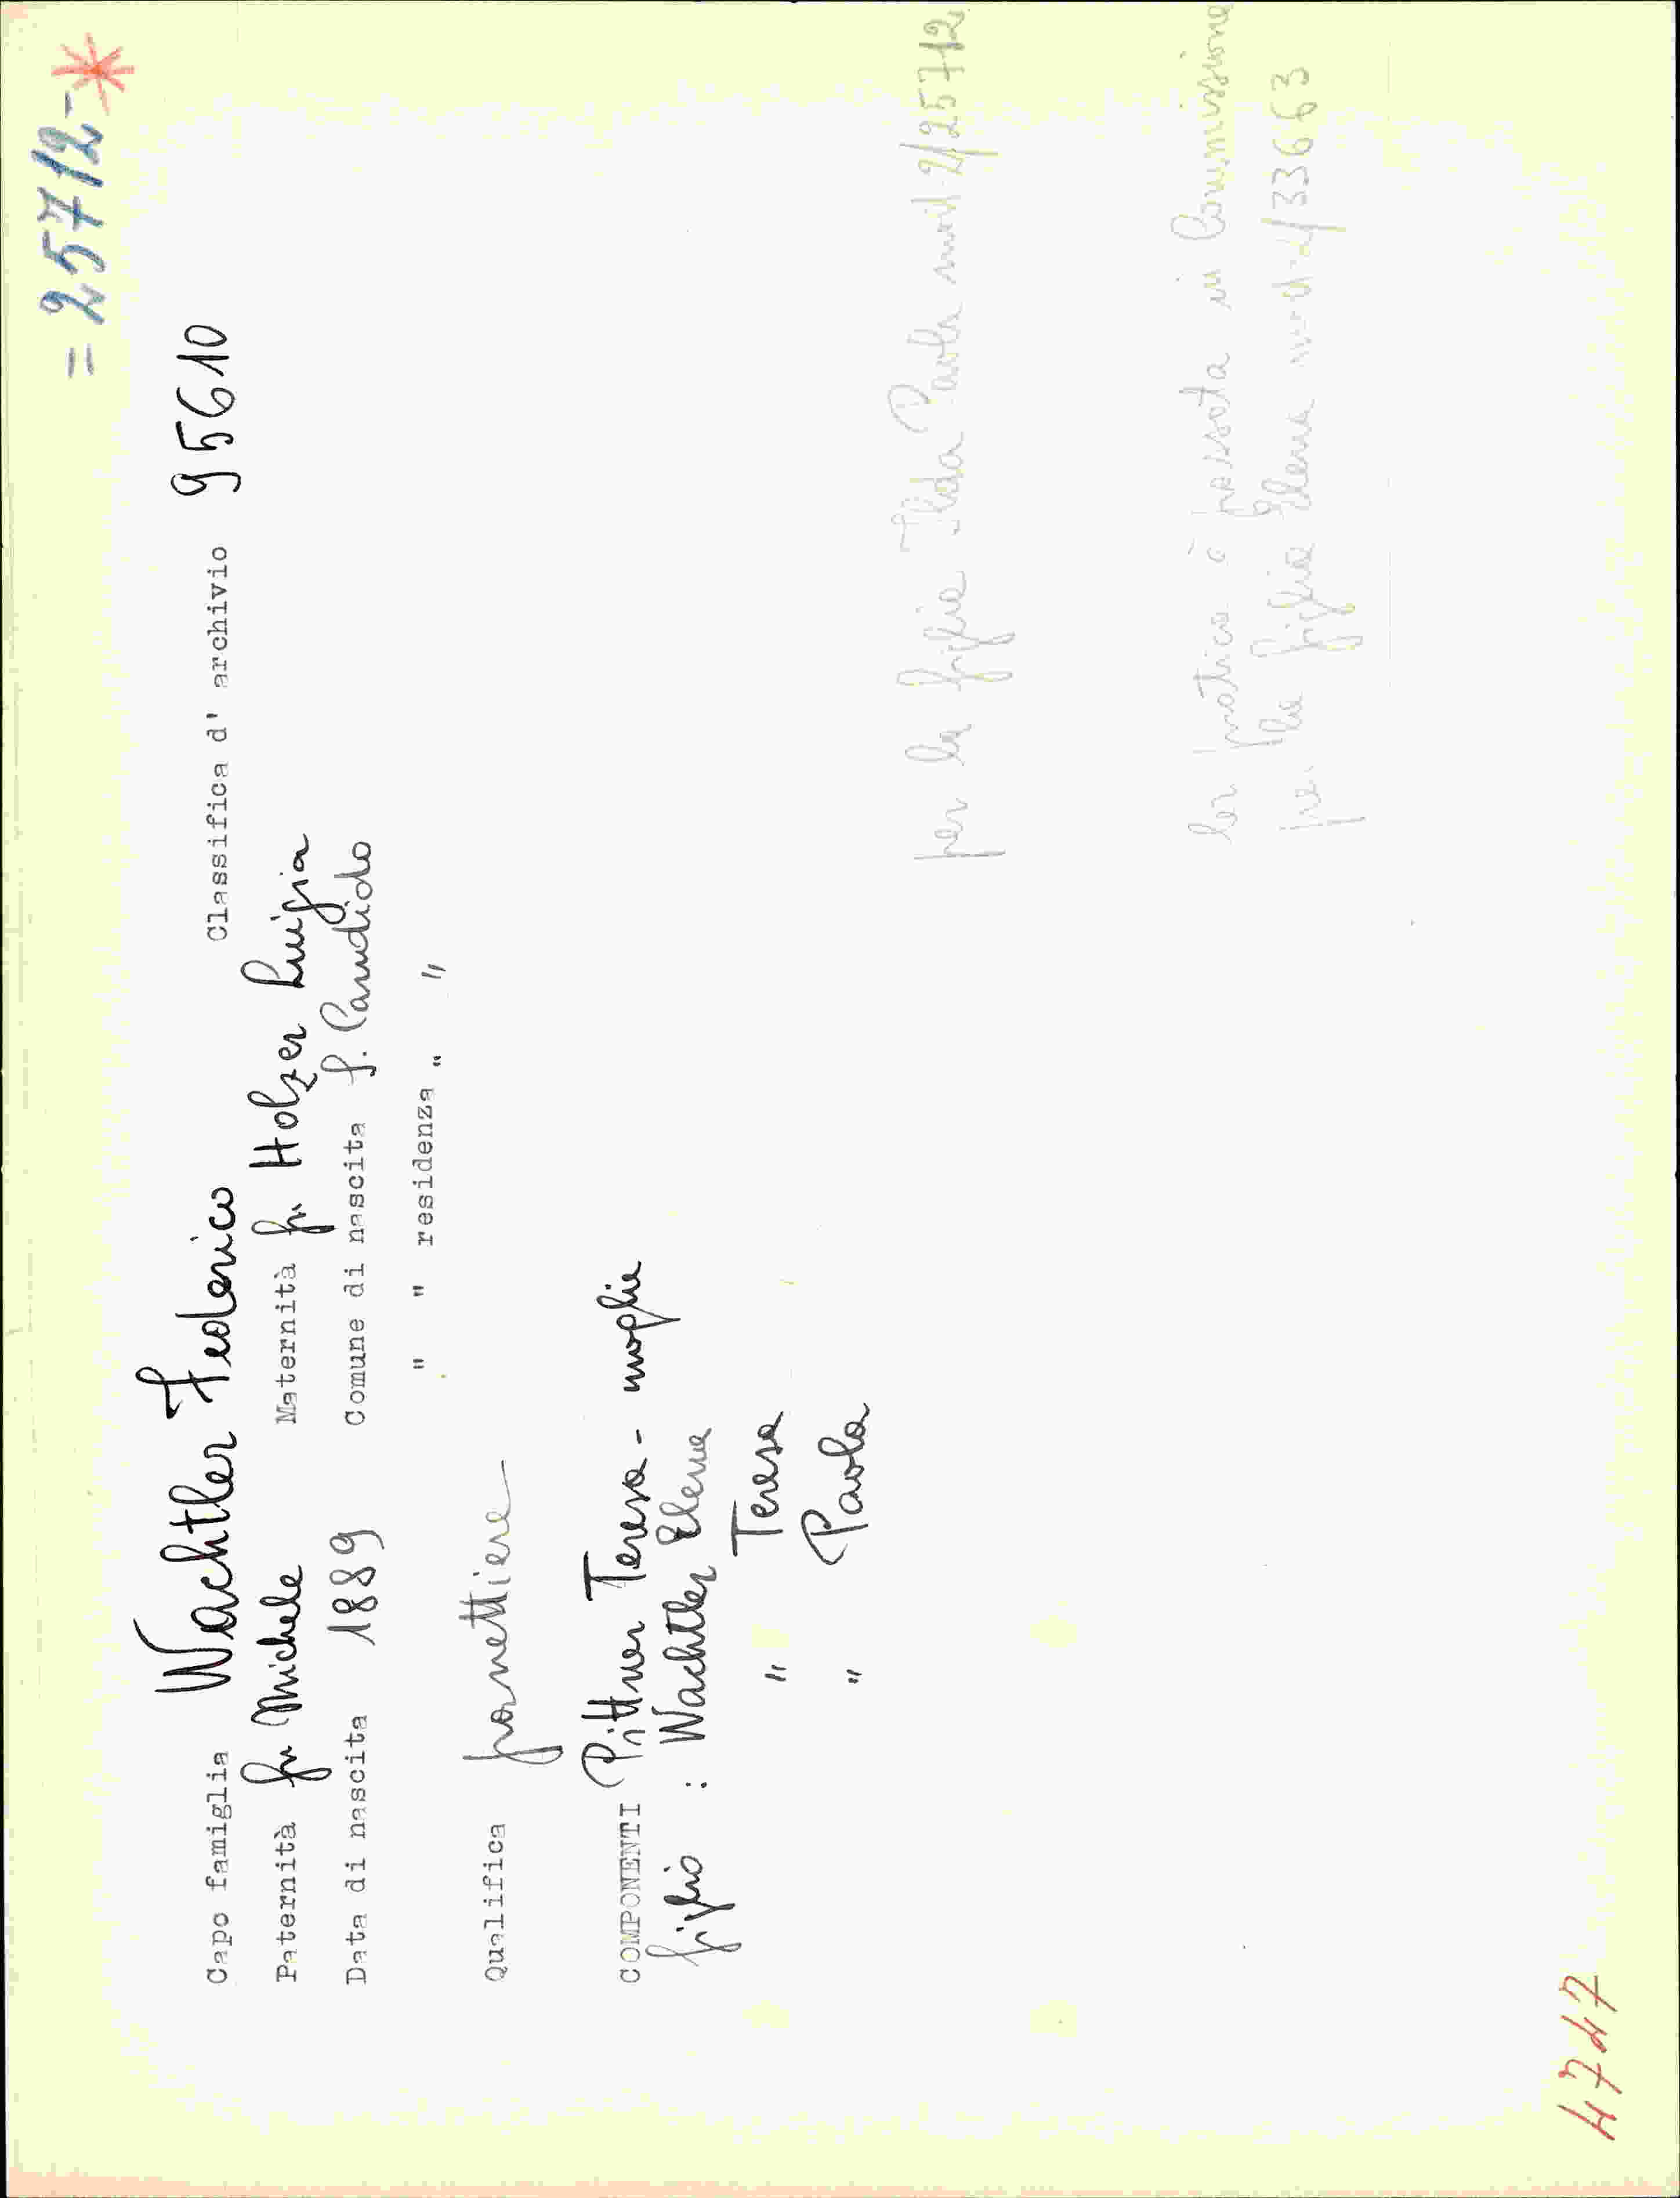 = 25712 - *
Capo famiglia Wachtler Federico Classifica d' archivio 95610
Paternità fu Michele Maternità fu Holzer Luigia
Data di nascita 1889 Comune di nascita S. Candido
" " residenza " "
Qualifica panettiere
COMPONENTI Pittner Teresa - moglie
figlio : Wachtler Elena
" Teresa
" Paola
per la figlia Ilda Paola mod. 2/25712
la pratica è passata in Commissione
per la figlia Elena mod 2/33663
4747